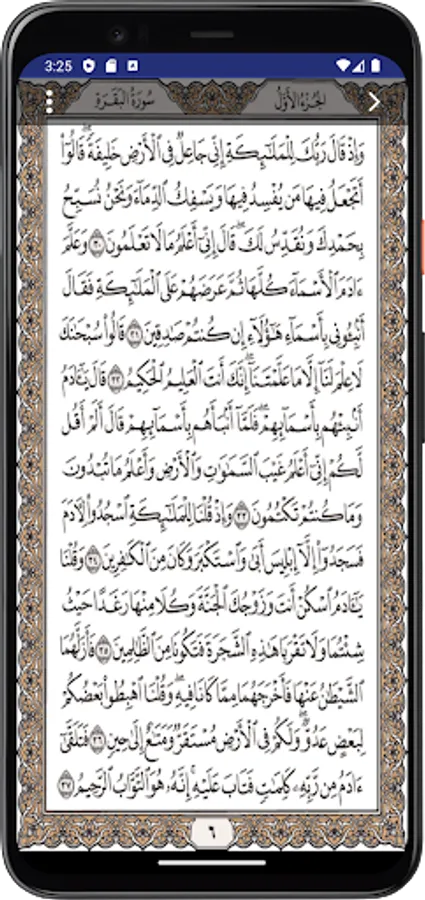 3:25
سُورَةُ البَقَرَةِ
الجُزْءُ الأَوَّلُ
وَإِذْ قَالَ رَبُّكَ لِلْمَلَٰٓئِكَةِ إِنِّي جَاعِلٌ فِي ٱلْأَرْضِ خَلِيفَةً ۖ قَالُوٓا۟
أَتَجْعَلُ فِيهَا مَن يُفْسِدُ فِيهَا وَيَسْفِكُ ٱلدِّمَآءَ وَنَحْنُ نُسَبِّحُ
بِحَمْدِكَ وَنُقَدِّسُ لَكَ ۖ قَالَ إِنِّيٓ أَعْلَمُ مَا لَا تَعْلَمُونَ ٣٠ وَعَلَّمَ
ءَادَمَ ٱلْأَسْمَآءَ كُلَّهَا ثُمَّ عَرَضَهُمْ عَلَى ٱلْمَلَٰٓئِكَةِ فَقَالَ
أَنۢبِـُٔونِي بِأَسْمَآءِ هَٰٓؤُلَآءِ إِن كُنتُمْ صَٰدِقِينَ ٣١ قَالُوا۟ سُبْحَٰنَكَ
لَا عِلْمَ لَنَآ إِلَّا مَا عَلَّمْتَنَآ ۖ إِنَّكَ أَنتَ ٱلْعَلِيمُ ٱلْحَكِيمُ ٣٢ قَالَ يَٰٓـَٔادَمُ
أَنۢبِئْهُم بِأَسْمَآئِهِمْ ۖ فَلَمَّآ أَنۢبَأَهُم بِأَسْمَآئِهِمْ قَالَ أَلَمْ أَقُل
لَّكُمْ إِنِّيٓ أَعْلَمُ غَيْبَ ٱلسَّمَٰوَٰتِ وَٱلْأَرْضِ وَأَعْلَمُ مَا تُبْدُونَ
وَمَا كُنتُمْ تَكْتُمُونَ ٣٣ وَإِذْ قُلْنَا لِلْمَلَٰٓئِكَةِ ٱسْجُدُوا۟ لِـَٔادَمَ
فَسَجَدُوٓا۟ إِلَّآ إِبْلِيسَ أَبَىٰ وَٱسْتَكْبَرَ وَكَانَ مِنَ ٱلْكَٰفِرِينَ ٣٤ وَقُلْنَا
يَٰٓـَٔادَمُ ٱسْكُنْ أَنتَ وَزَوْجُكَ ٱلْجَنَّةَ وَكُلَا مِنْهَا رَغَدًا حَيْثُ
شِئْتُمَا وَلَا تَقْرَبَا هَٰذِهِ ٱلشَّجَرَةَ فَتَكُونَا مِنَ ٱلظَّٰلِمِينَ ٣٥ فَأَزَلَّهُمَا
ٱلشَّيْطَٰنُ عَنْهَا فَأَخْرَجَهُمَا مِمَّا كَانَا فِيهِ ۖ وَقُلْنَا ٱهْبِطُوا۟ بَعْضُكُمْ
لِبَعْضٍ عَدُوٌّ ۖ وَلَكُمْ فِي ٱلْأَرْضِ مُسْتَقَرٌّ وَمَتَٰعٌ إِلَىٰ حِينٍ ٣٦ فَتَلَقَّىٰٓ
ءَادَمُ مِن رَّبِّهِۦ كَلِمَٰتٍ فَتَابَ عَلَيْهِ ۚ إِنَّهُۥ هُوَ ٱلتَّوَّابُ ٱلرَّحِيمُ ٣٧
٦